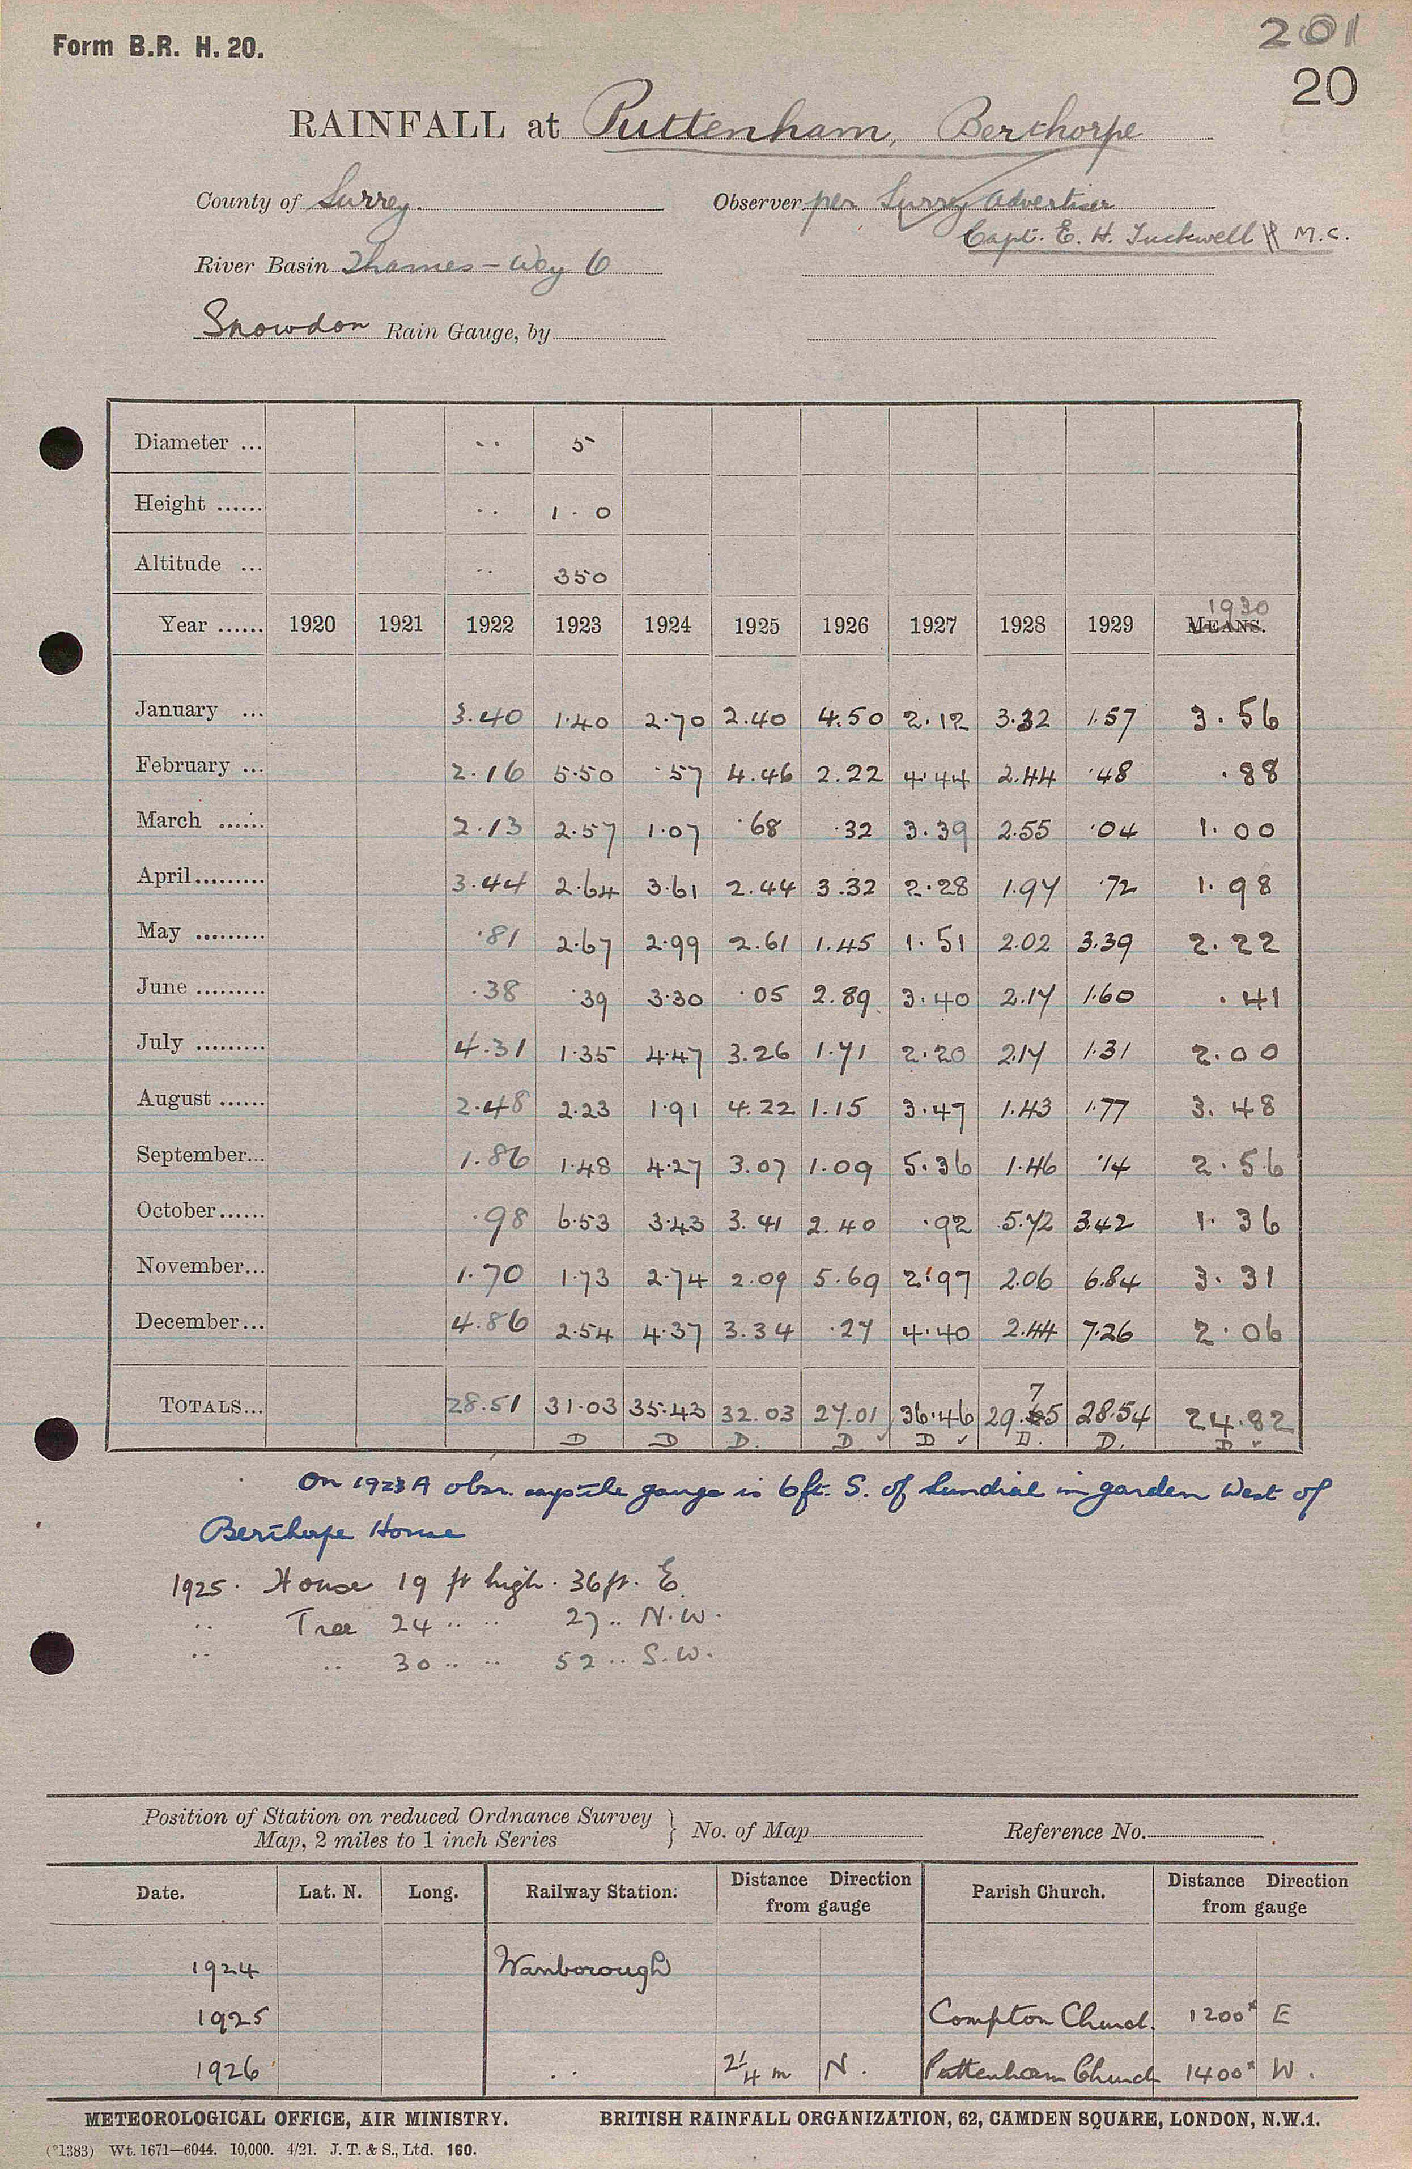 Form B.R. H. 20.
201
20
RAINFALL at Puttenham, Berthorpe
County of Surrey. Observer per Surrey Advertiser
Capt. E. H. Tuckwell M.C.
River Basin Thames - Wey 6
Snowdon Rain Gauge, by
Diameter ... .. 5
Height ...... .. 1 . 0
Altitude ... .. 350
1930
Year ...... 1920 1921 1922 1923 1924 1925 1926 1927 1928 1929 MEANS.
January ... 3.40 1.40 2.70 2.40 4.50 2.12 3.32 1.57 3.56
February ... 2.16 5.50 .57 4.46 2.22 4.44 2.44 .48 .88
March ...... 2.13 2.57 1.07 .68 .32 3.39 2.55 .04 1.00
April......... 3.44 2.64 3.61 2.44 3.32 2.28 1.97 .72 1.98
May ......... .81 2.67 2.99 2.61 1.45 1.51 2.02 3.39 2.22
June ......... .38 .39 3.30 .05 2.89 3.40 2.17 1.60 .41
July ......... 4.31 1.35 4.47 3.26 1.71 2.20 2.17 1.31 2.00
August ...... 2.48 2.23 1.91 4.22 1.15 3.47 1.43 1.77 3.48
September... 1.86 1.48 4.27 3.07 1.09 5.36 1.46 .14 2.56
October...... .98 6.53 3.43 3.41 2.40 .92 5.72 3.42 1.36
November... 1.70 1.73 2.74 2.09 5.69 2.97 2.06 6.84 3.31
December... 4.86 2.54 4.37 3.34 .27 4.40 2.44 7.26 2.06
TOTALS... 28.51 31.03 35.43 32.03 27.01 36.46 29.75 28.54 24.82
D D D. D ✓ D ✓ D. D. D ✓
On 1923 A obsr. says the gauge is 6ft. S. of Sundial in garden West of
Berthorpe House
1925. House 19 ft high. 36ft. E.
.. Tree 24 .. .. 27 .. N.W.
.. .. 30 .. .. 52 .. S.W.
Position of Station on reduced Ordnance Survey
Map, 2 miles to 1 inch Series
No. of Map Reference No.
Date. Lat. N. Long. Railway Station. Distance Direction from gauge Parish Church. Distance Direction from gauge
1924 Wanborough
1925 Compton Church. 1200ˣ E
1926 .. 2¼ m N. Puttenham Church 1400ˣ W.
METEOROLOGICAL OFFICE, AIR MINISTRY. BRITISH RAINFALL ORGANIZATION, 62, CAMDEN SQUARE, LONDON, N.W.1.
(*1383) Wt. 1671—6044. 10,000. 4/21. J. T. & S., Ltd. 160.